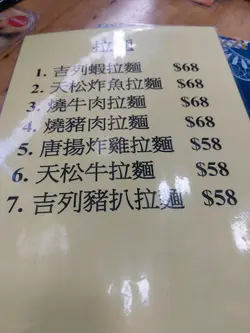 拉麵
1. 吉列蝦拉麵 $68
2. 天松炸魚拉麵 $68
3. 燒牛肉拉麵 $68
4. 燒豬肉拉麵 $68
5. 唐揚炸雞拉麵 $58
6. 天松牛拉麵 $58
7. 吉列豬扒拉麵 $58